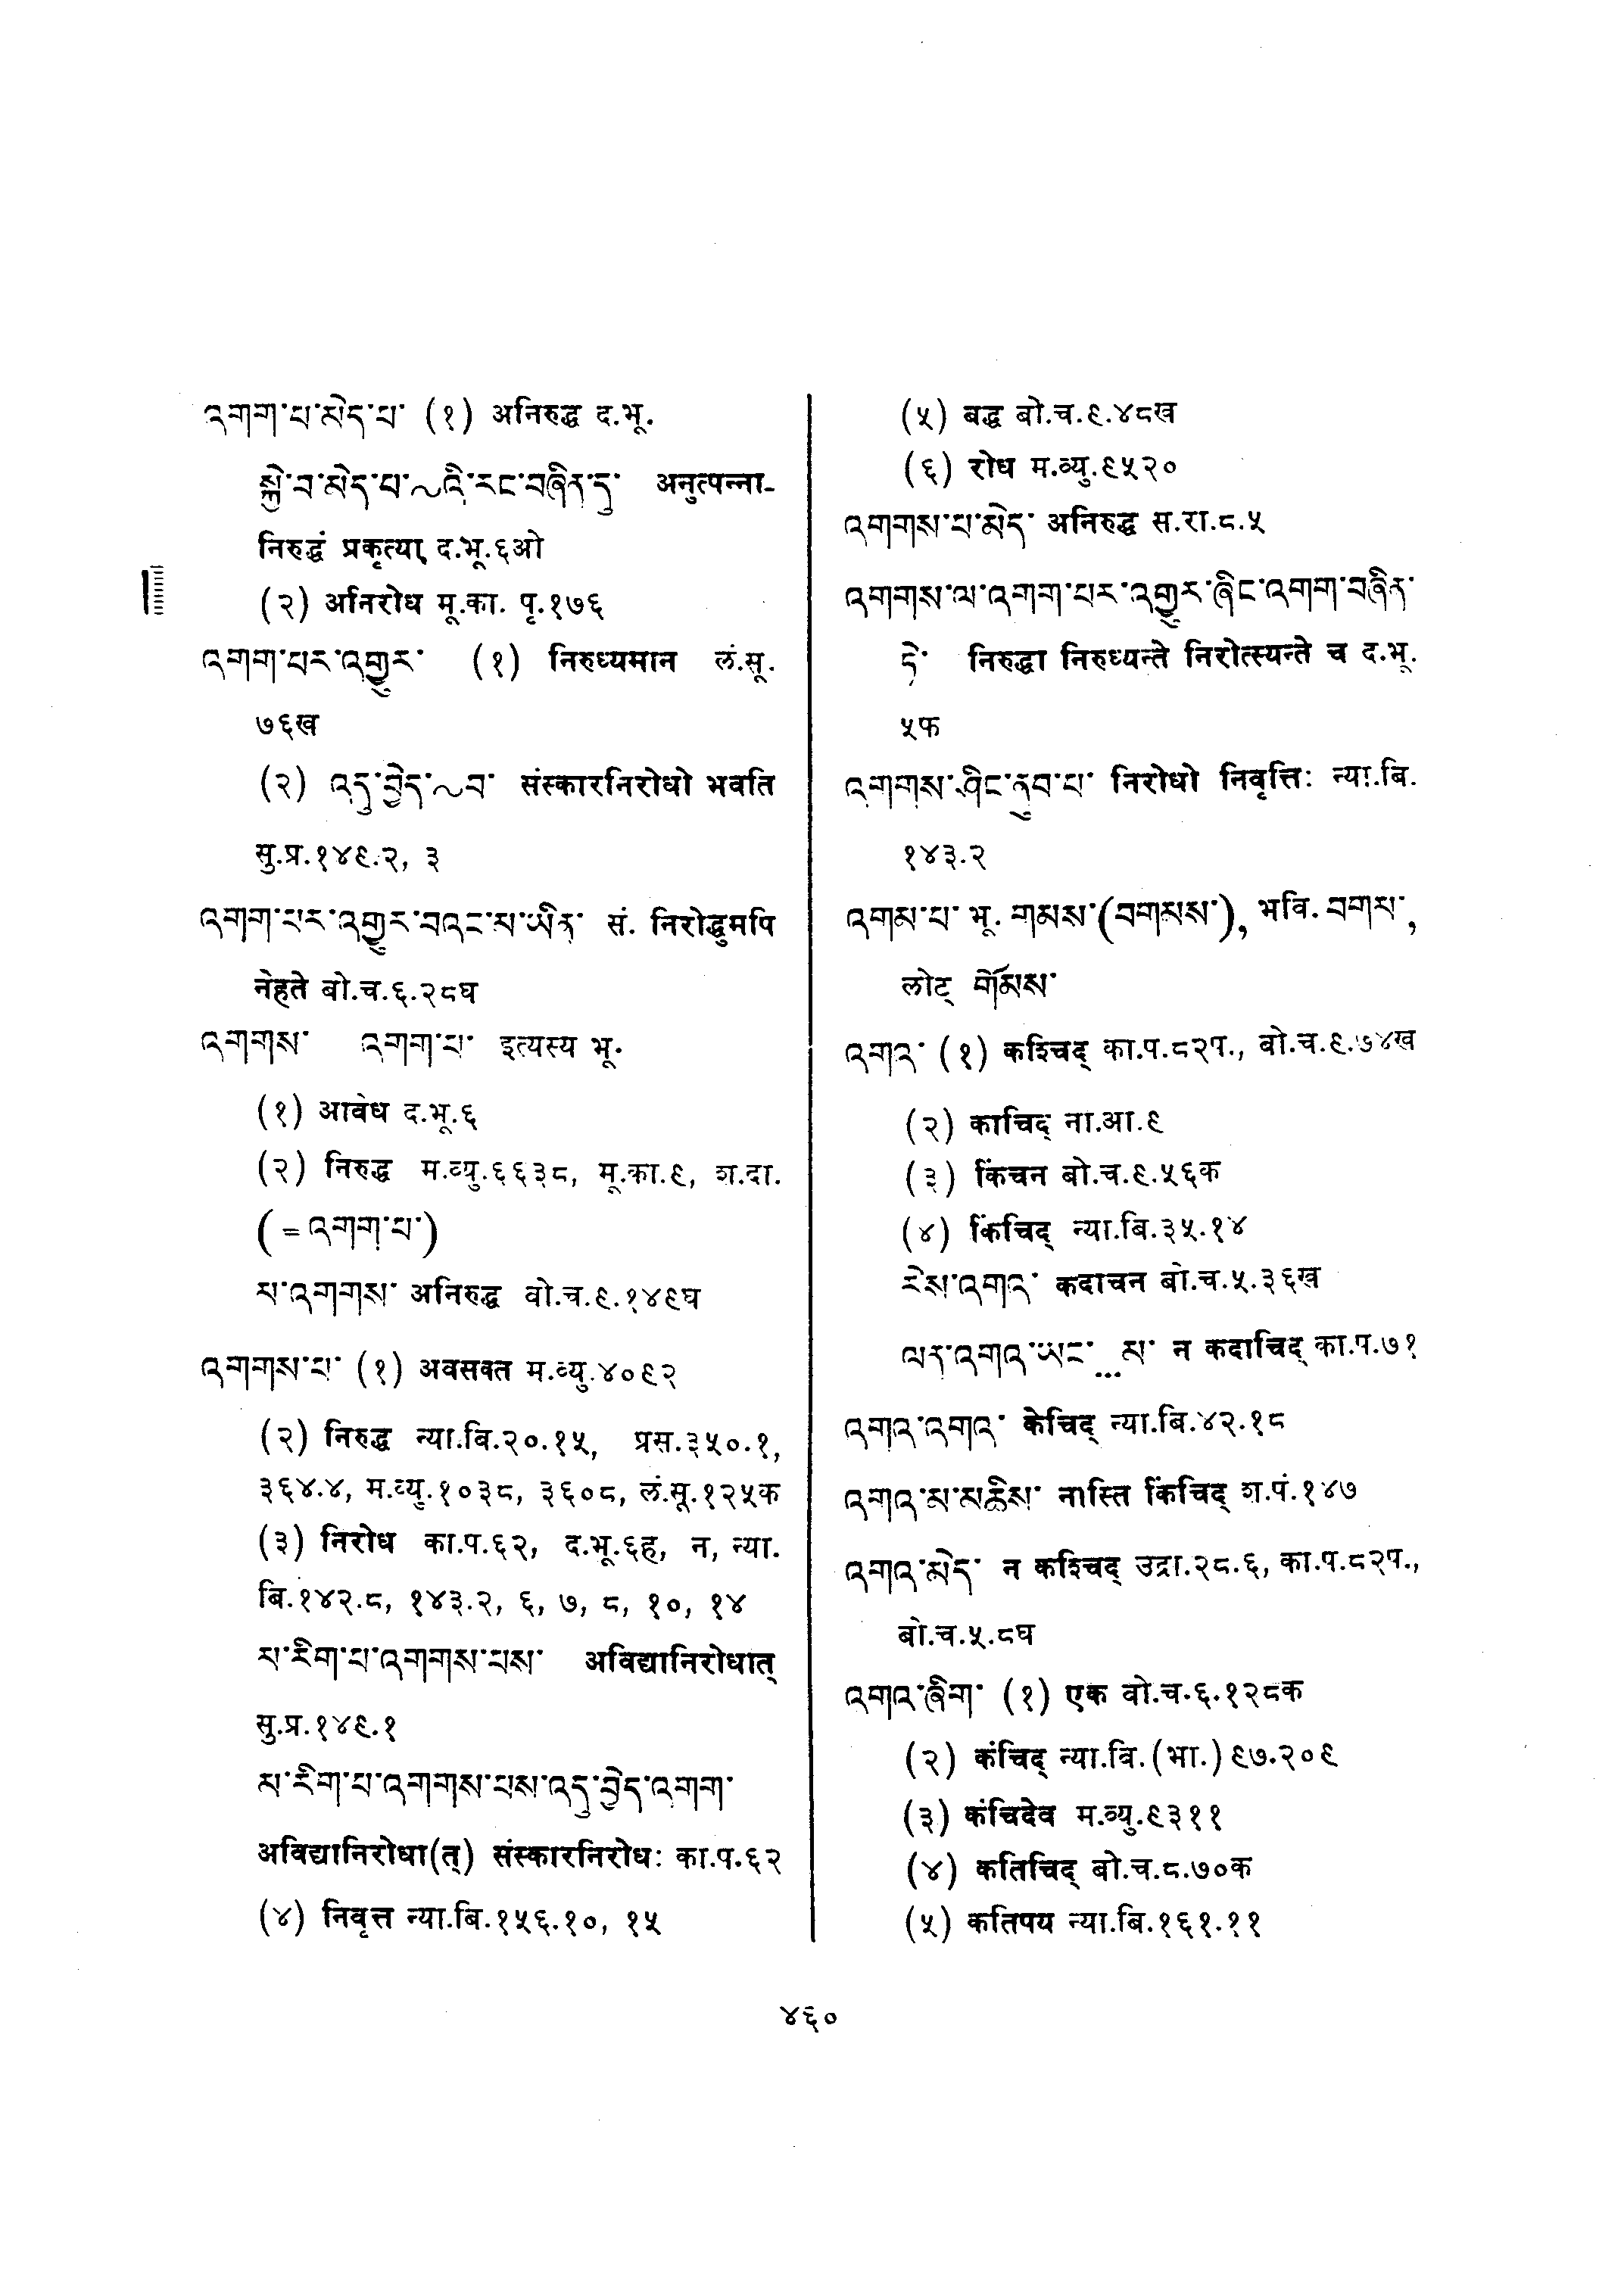 འགག་པ་མེད་པ་ (१) अनिरुद्ध द.भू.
སྐྱེ་བ་མེད་པ་~འི་རང་བཞིན་དུ་ अनुत्पन्ना-
निरुद्धं प्रकृत्या द.भू.६ओ
(२) अनिरोध मू.का. पृ.१७६
འགག་པར་འགྱུར་ (१) निरुध्यमान लं.सू.
७६ख
(२) འདུ་བྱེད་~བ་ संस्कारनिरोधो भवति
सु.प्र.१४९.२, ३
འགག་པར་འགྱུར་བའང་མ་ཡིན་ सं. निरोद्धुमपि
नेहते बो.च.६.२८घ
འགགས་ འགག་པ་ इत्यस्य भू.
(१) आवेध द.भू.६
(२) निरुद्ध म.व्यु.६६३८, मू.का.९, श.दा.
(=འགག་པ་)
མ་འགགས་ अनिरुद्ध बो.च.९.१४९घ
འགགས་པ་ (१) अवसक्त म.व्यु.४०९२
(२) निरुद्ध न्या.बि.२०.१५, प्रस.३५०.१,
३६४.४, म.व्यु.१०३८, ३६०८, लं.सू.१२५क
(३) निरोध का.प.६२, द.भू.६ह, न, न्या.
बि.१४२.८, १४३.२, ६, ७, ८, १०, १४
མ་རིག་པ་འགགས་པས་ अविद्यानिरोधात्
सु.प्र.१४९.१
མ་རིག་པ་འགགས་པས་འདུ་བྱེད་འགག་
अविद्यानिरोधा(त्) संस्कारनिरोधः का.प.६२
(४) निवृत्त न्या.बि.१५६.१०, १५
(५) बद्ध बो.च.९.४८ख
(६) रोध म.व्यु.९५२०
འགགས་པ་མེད་ अनिरुद्ध स.रा.८.५
འགགས་ལ་འགག་པར་འགྱུར་ཞིང་འགག་བཞིན་
ཏེ་ निरुद्धा निरुध्यन्ते निरोत्स्यन्ते च द.भू.
५फ
འགགས་ཤིང་ནུབ་པ་ निरोधो निवृत्तिः न्या.बि.
१४३.२
འགམ་པ་ भू. གམས་(བགམས་), भवि. བགམ་,
लोट् གོམས་
འགའ་ (१) कश्चिद् का.प.८२प., बो.च.९.७४ख
(२) काचिद् ना.आ.९
(३) किंचन बो.च.९.५६क
(४) किंचिद् न्या.बि.३५.१४
རེས་འགའ་ कदाचन बो.च.५.३६ख
ལན་འགའ་ཡང་...མ་ न कदाचिद् का.प.७१
འགའ་འགའ་ केचिद् न्या.बि.४२.१८
འགའ་མ་མཆིས་ नास्ति किंचिद् श.पं.१४७
འགའ་མེད་ न कश्चिद् उद्रा.२८.६, का.प.८२प.,
बो.च.५.८घ
འགའ་ཞིག་ (१) एक बो.च.६.१२८क
(२) कंचिद् न्या.बि.(भा.) ९७.२०९
(३) कंचिदेव म.व्यु.९३११
(४) कतिचिद् बो.च.८.७०क
(५) कतिपय न्या.बि.१६१.११
४६०